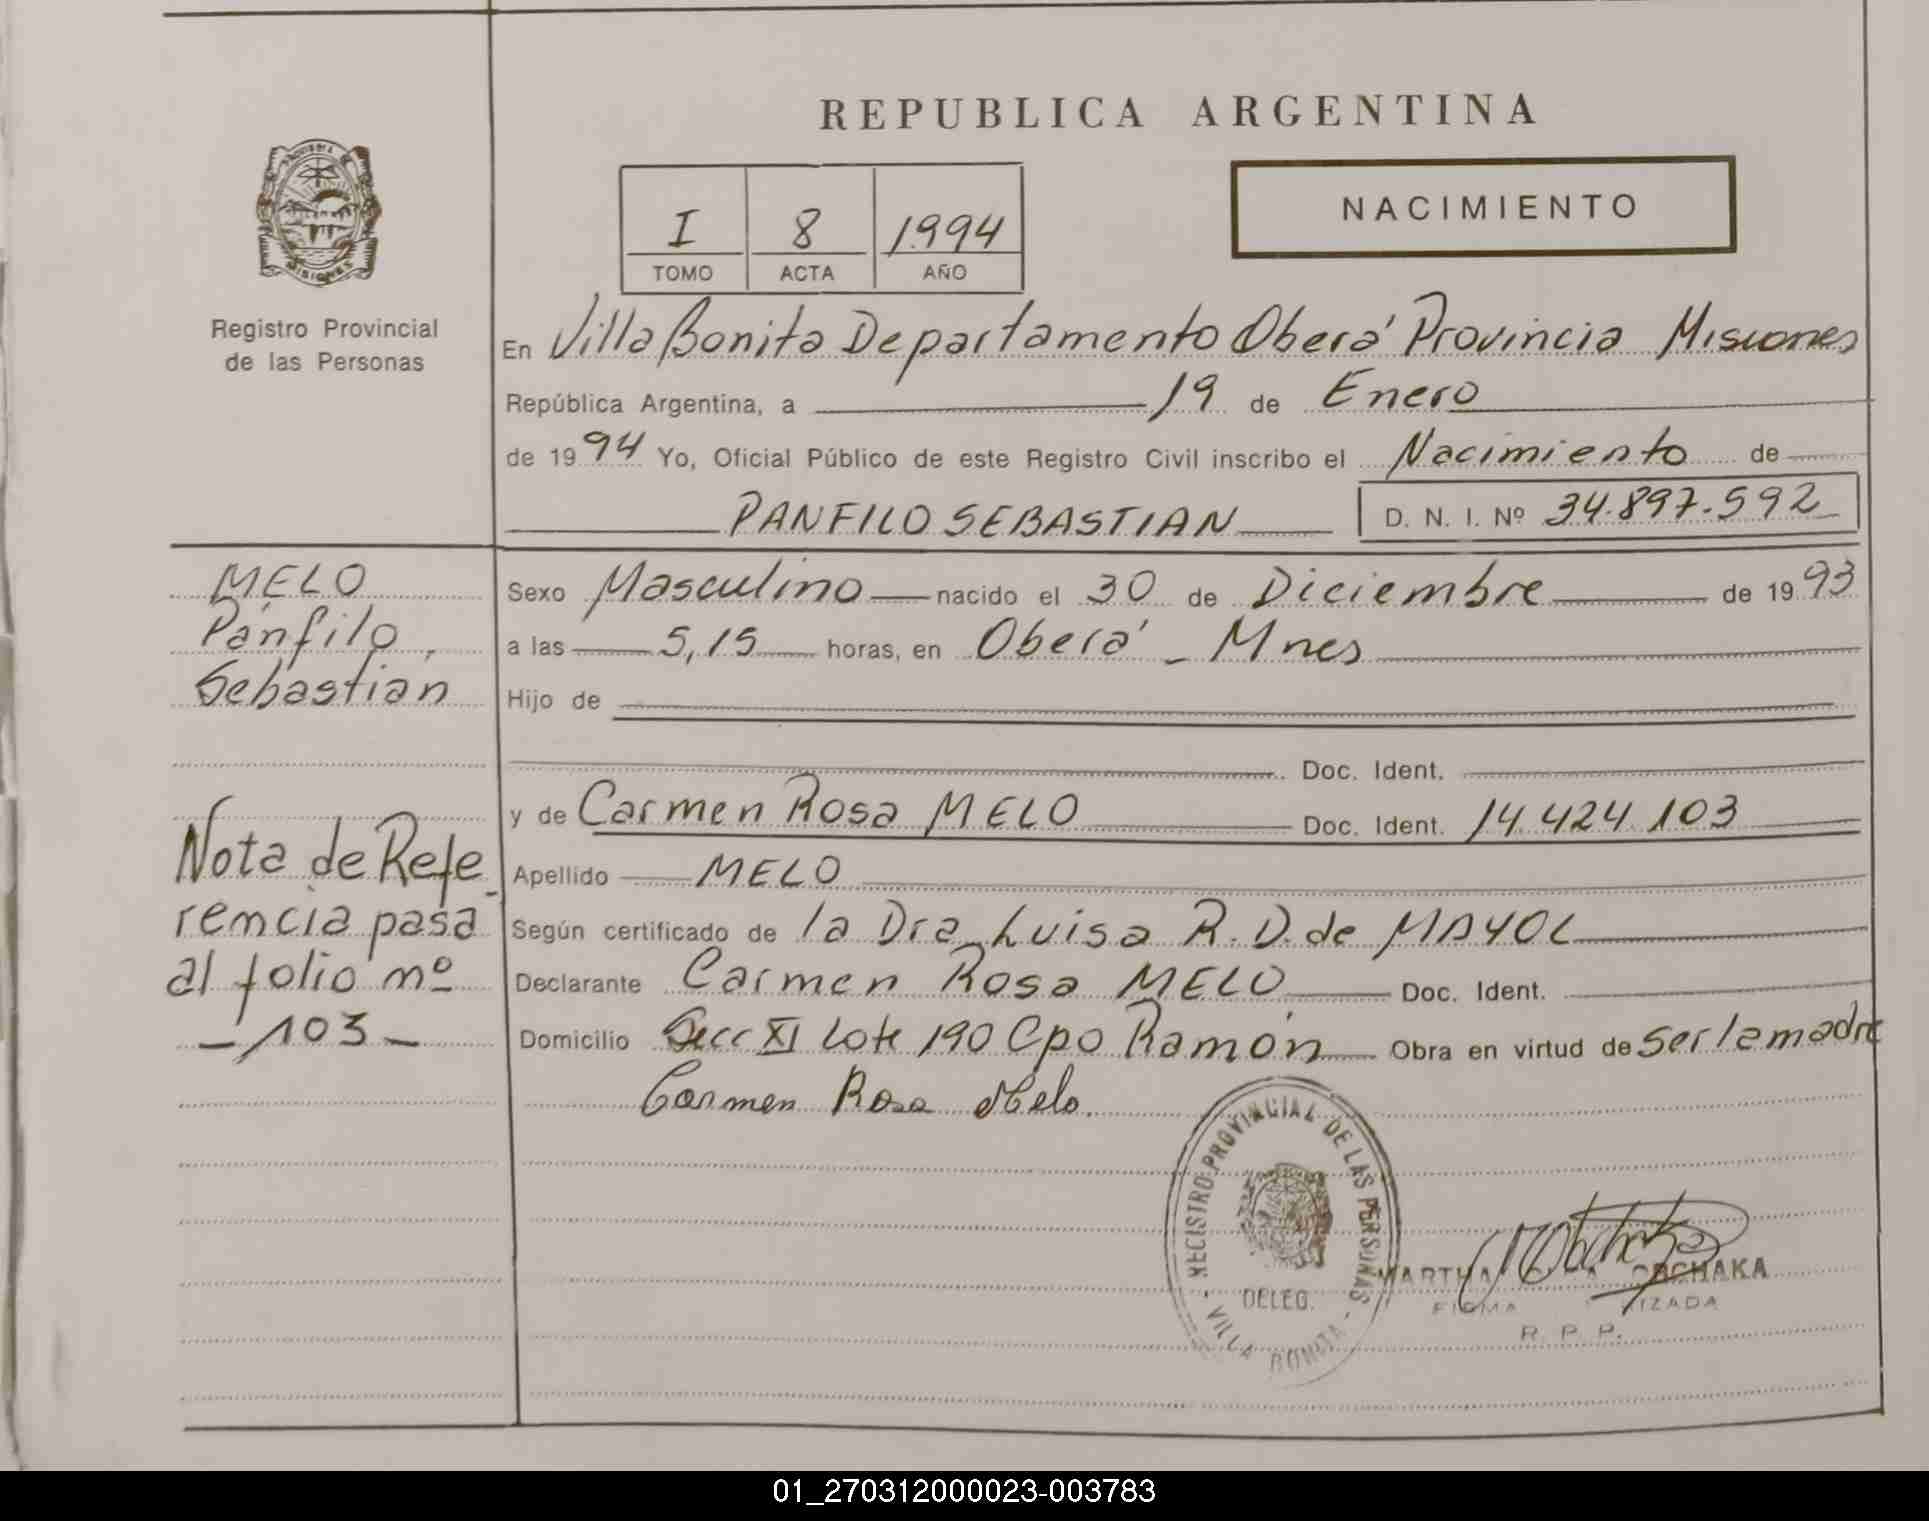 REPUBLICA ARGENTINA
PROVINCIA DE
MISIONES
Registro Provincial
de las Personas
I 8 1994
TOMO ACTA AÑO
NACIMIENTO
En Villa Bonita Departamento Oberá Provincia Misiones
República Argentina, a 19 de Enero
de 1994 Yo, Oficial Público de este Registro Civil inscribo el Nacimiento de
PANFILO SEBASTIAN D. N. I. Nº 34.897.592
MELO
Pánfilo,
Sebastian
Sexo Masculino nacido el 30 de Diciembre de 1993
a las 5,15 horas, en Oberá - Mnes
Hijo de
Doc. Ident.
y de Carmen Rosa MELO Doc. Ident. 14.424.103
Nota de Refe-
rencia pasa
al folio nº
-103-
Apellido MELO
Según certificado de la Dra Luisa R. D. de MAYOL
Declarante Carmen Rosa MELO Doc. Ident.
Domicilio Secc XI Lote 190 Cpo Ramón Obra en virtud de ser la madre
Carmen Rosa Melo.
REGISTRO PROVINCIAL DE LAS PERSONAS
DELEG.
- VILLA BONITA -
MARTHA
R. P. P.
01_270312000023-003783